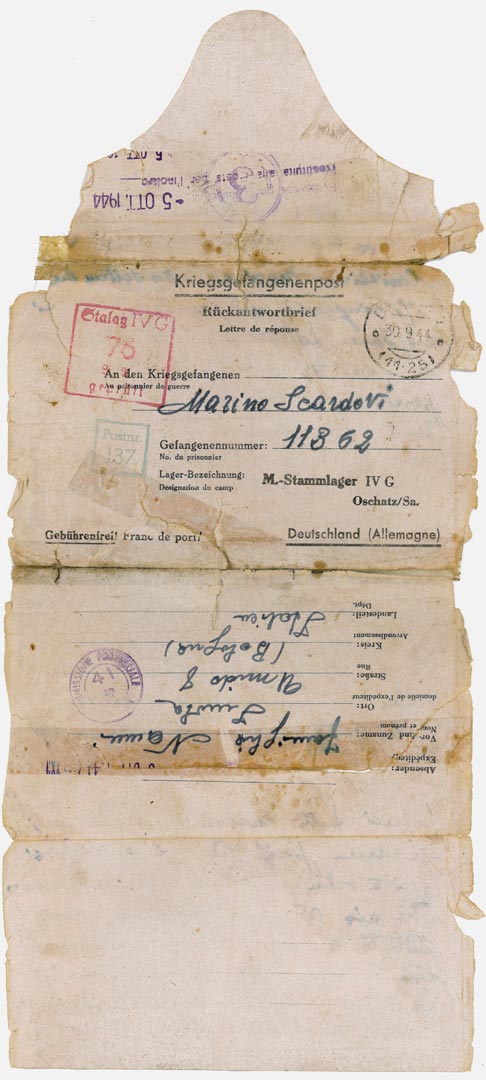 5 OTT. 1944
3
Kriegsgefangenenpost
Rückantwortbrief
Lettre de réponse
Stalag IV G
76
geprüft
30.9.44
(11-25)
An den Kriegsgefangenen
Au prisonnier de guerre
Marino Scardovi
Postnr.
137
Gefangenennummer: 11862
No. du prisonnier
Lager-Bezeichnung: M.-Stammlager IV G
Designation du camp
Oschatz/Sa.
Gebührenfrei! Franc de port!
Deutschland (Allemagne)
Absender:
Expéditeur:
Vor- und Zuname:
Nom et prénom
Ort: Imola
domicile de l'expéditeur
Straße: 8
Rue
Kreis: (Bologna)
Arrondissement
Landesteil: Italien
Dépt.
41